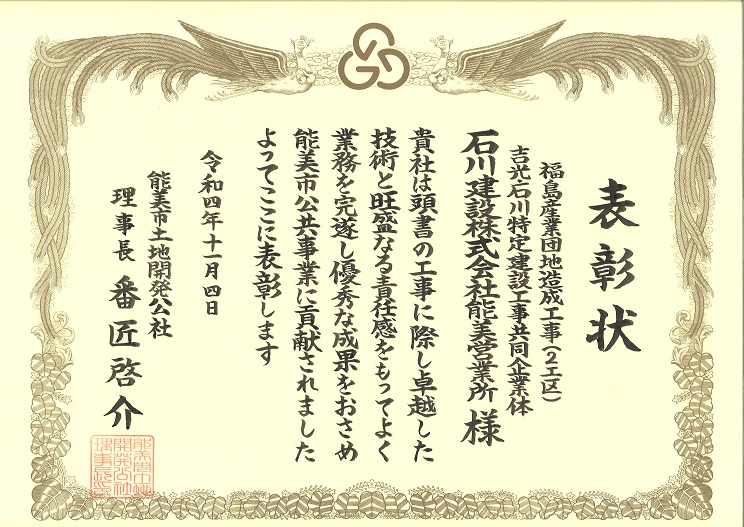 表彰状
福島産業団地造成工事(2工区)
吉光石川特定建設工事共同企業体
石川建設株式会社能美営業所 様
貴社は頭書の工事に際し卓越した
技術と旺盛なる責任感をもってよく
業務を完遂し優秀な成果をおさめ
能美市公共事業に貢献されました
よってここに表彰します
令和四年十一月四日
能美市土地開発公社
理事長 番匠啓介